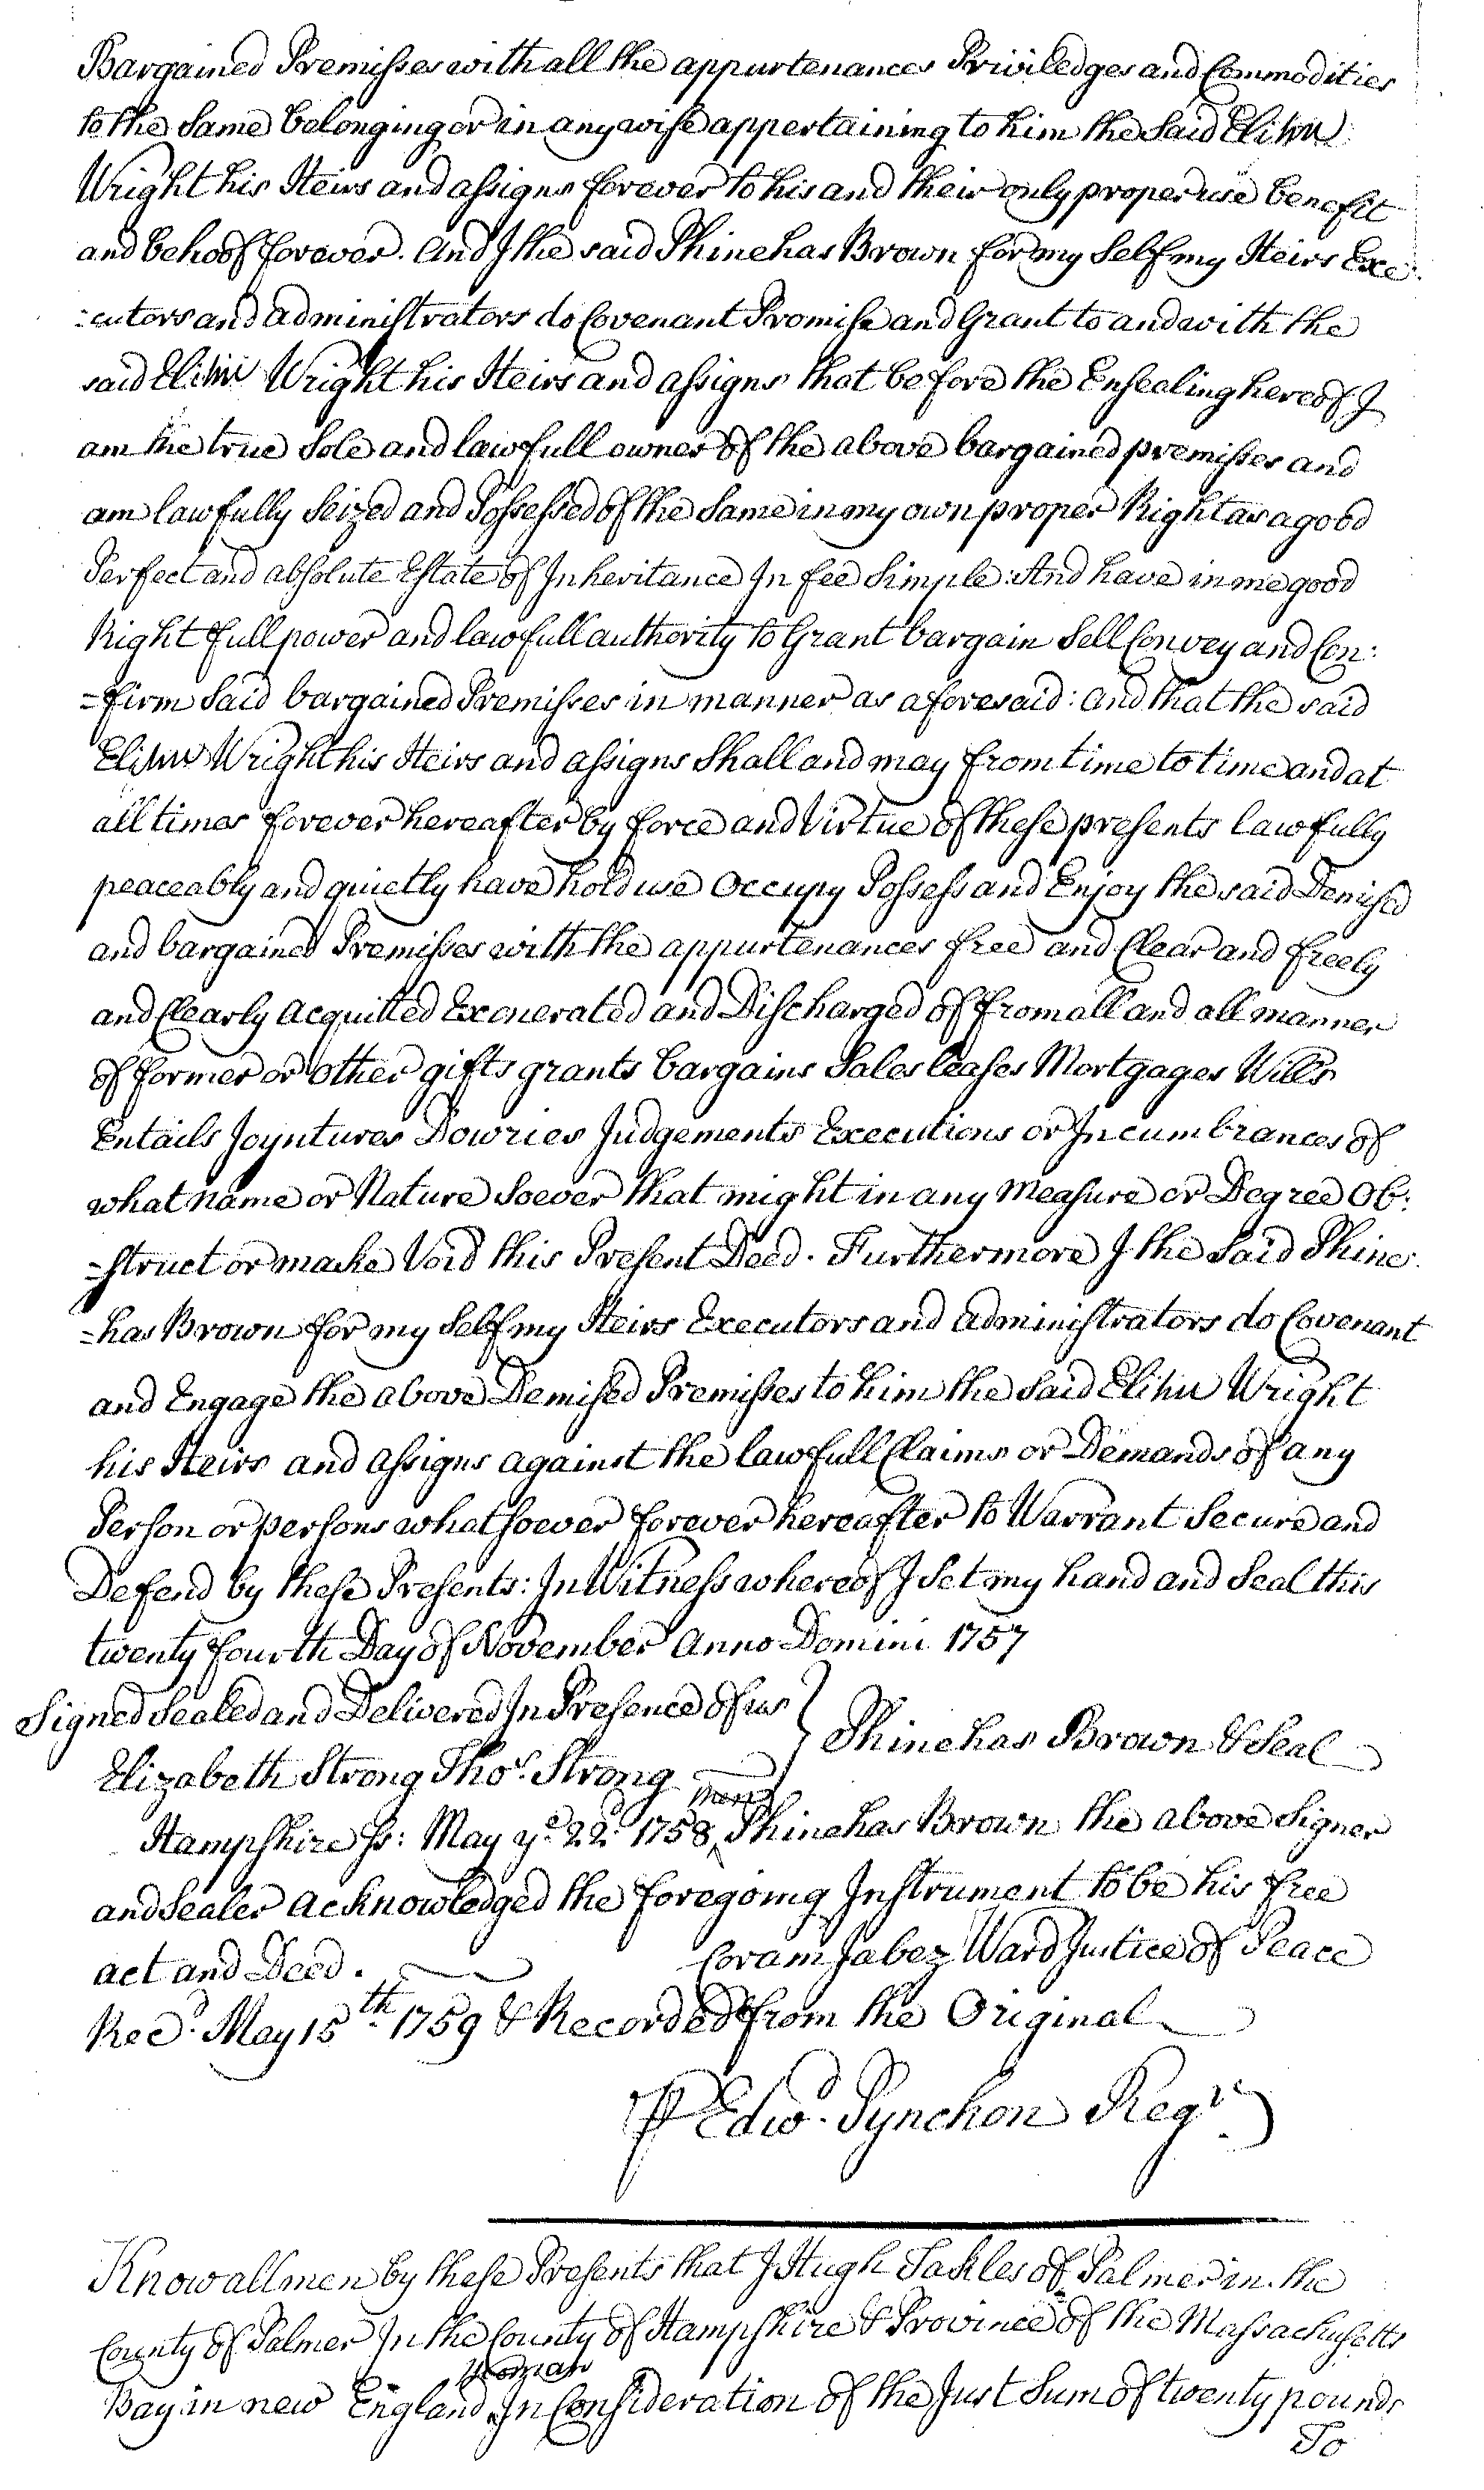 Bargained Premisses with all the appurtenances Priviledges and Commodities
to the Same belonging or in any wise appertaining to him the Said Elihu
Wright his Heirs and assigns forever to his and their only proper use benefit
and behoof forever. And I the said Phinehas Brown for my Self my Heirs Exe:
:cutors and administrators do Covenant Promise and Grant to and with the
said Elihu Wright his Heirs and assigns that before the Ensealing hereof I
am the true Sole and lawfull owner of the above bargained premisses and
am lawfully Seized and Possessed of the Same in my own proper Right as a good
Perfect and absolute Estate of Inheritance In fee Simple: And have in me good
Right full power and lawfull authority to Grant bargain Sell Convey and Con:
=firm Said bargained Premisses in manner as aforesaid: and that the said
Elihu Wright his Heirs and assigns Shall and may from time to time and at
all times forever hereafter by force and Virtue of these presents lawfully
peaceably and quietly have hold use Occupy Possess and Enjoy the said Demised
and bargained Premisses with the appurtenances free and Clear and freely
and Clearly acquitted Exonerated and Discharged of from all and all manner
of former or other gifts grants bargains Sales leases Mortgages Wills
Entails Joyntures Dowries Judgements Executions or Incumbrances of
what name or Nature Soever that might in any Measure or Degree Ob:
=struct or make Void this Present Deed. Furthermore I the Said Phine:
=has Brown for my Self my Heirs Executors and administrators do Covenant
and Engage the above Demised Premisses to him the Said Elihu Wright
his Heirs and assigns against the lawfull Claims or Demands of any
Person or persons whatsoever forever hereafter to Warrant Secure and
Defend by these Presents: In Witness whereof I Set my hand and Seal this
twenty fourth Day of November Anno Domini 1757
Signed Sealed and Delivered In Presence of us } Phinehas Brown & Seal
Elizabeth Strong Thos. Strong
Hampshire Ss: May ye. 22d. 1758 then Phinehas Brown the above Signer
and Sealer acknowledged the foregoing Instrument to be his free
act and Deed. Coram Jabez Ward Justice of Peace
Recd. May 15th. 1759 & Recorded from the Original
P Edwd. Pynchon Regr.
Know all men by these Presents that I Hugh Sakles of Palmer in the
County of Palmer In the County of Hampshire & Province of the Massachusetts
Bay in new England yeoman In Consideration of the Just Sum of twenty pounds
To